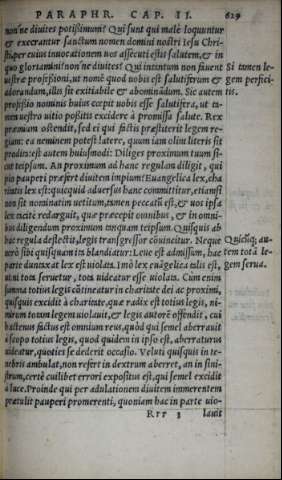 PARAPHR. CAP. II. 629
non'ne diuites potissimum? Qui sunt qui male loquuntur
& execrantur sanctum nomen domini nostri Iesu Chri-
sti, per cuius inuocationem uos assecuti estis salutem, & in
quo gloriamini? non'ne diuites? Qui intantum non fiuent
uestræ professioni, ut nomē quod uobis est salutiferum &
adorandum, illis sit exitiabile & abominādum. Sic autem
professio nominis huius cœpit uobis esse salutifera, ut ta-
men uestro uitio possitis excidere à promissa salute. Rex
præmium ostendit, sed ei qui factis præstiterit legem re-
giam: ea neminem potest latere, quum iam olim literis sit
prodita: est autem huiusmodi: Diliges proximum tuum si-
cut teipsum. An proximum ad hanc regulam diligit, qui
pio pauperi præfert diuitem impium? Euangelica lex, cha
ritatis lex est: quicquid aduersus hanc committitur, etiamsi
non sit nominatim uetitum, tamen peccatū est, & uos ipsa
lex tacitè redarguit, quæ præcepit omnibus, & in omni-
bus diligendum proximum tanquam teipsum. Quisquis ab
hac regula deflectit, legis transgressor cōuincitur. Neque
uerò sibi quisquam ita blandiatur: Leue est admissum, hac
parte duntaxat lex est uiolata. Imò lex euāgelica talis est,
ut ni tota seruetur, tota uideatur esse uiolata. Cum enim
summa totius legis cōtineatur in charitate dei ac proximi,
quisquis excidit à charitate, quæ radix est totius legis, ni-
mirum totam legem uiolauit, & legis autorē offendit, cui
hactenus factus est omnium reus, quòd qui semel aberrauit
à scopo totius legis, quod quidem in ipso est, aberraturus
uideatur, quoties se dederit occasio. Veluti quisquis in te-
nebris ambulat, non refert in dextrum aberret, an in sini-
strum, certè cuilibet errori expositus est, qui semel excidit
à luce. Proinde qui per adulationem diuitem immerentem
prætulit pauperi promerenti, quoniam hac in parte uio-
Rrr 3 lauit
Si tamen le-
gem perfici-
tis.
Quicūq; au-
tem totā le-
gem serua.